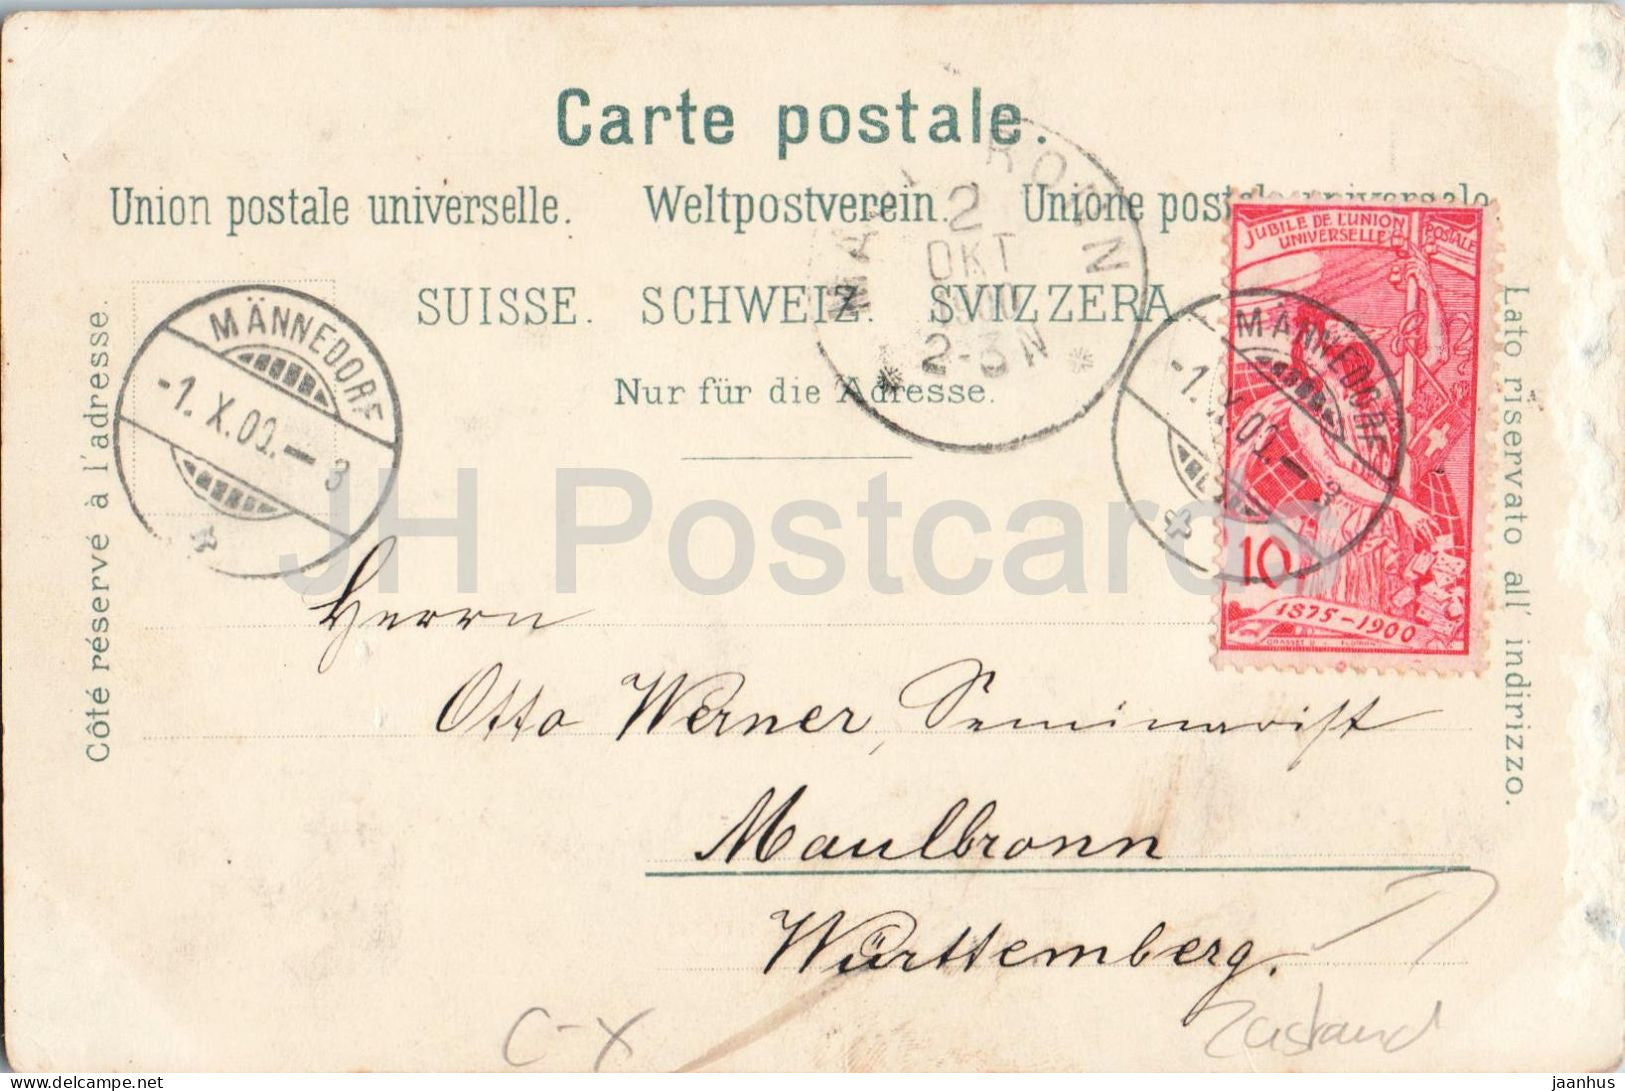 Carte postale.
Union postale universelle. Weltpostverein. Unione postale universale.
SUISSE. SCHWEIZ. SVIZZERA.
Nur für die Adresse.
Côté réservé à l'adresse.
Lato riservato all' indirizzo.
MÄNNEDORF
-1. X.00.-3
2
OKT
2-3N
MÄNNEDORF
-1. X.00.-3
JUBILÉ DE L'UNION
POSTALE
UNIVERSELLE
10
1875-1900
GRASSET
JH Postcards
Herrn
Otto Werner, Seminarist
Maulbronn
Württemberg.
C-X
Zustand
www.delcampe.net
jaanhus